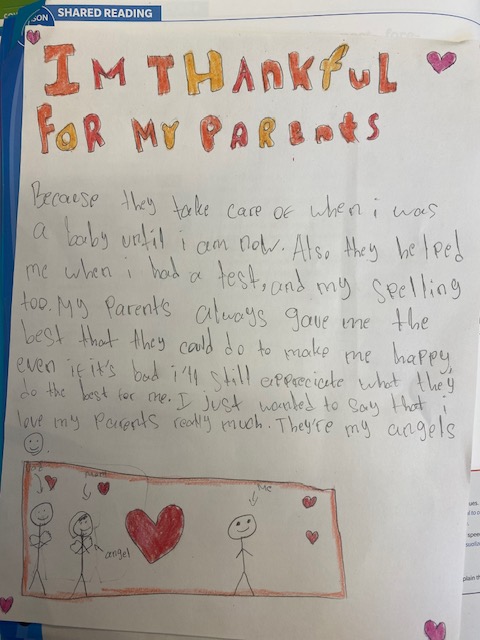 SHARED READING
IM THAnkful
FOR MY PARents
Because they take care of when i was
a baby until i am now. Also they helped
me when i had a test, and my spelling
too. My Parents always gave me the
best that they could do to make me happy,
even if it's bad i'll still appreciate what they
do the best for me. I just wanted to say that i
love my parents really much. They're my angels
Mom
Me
angel